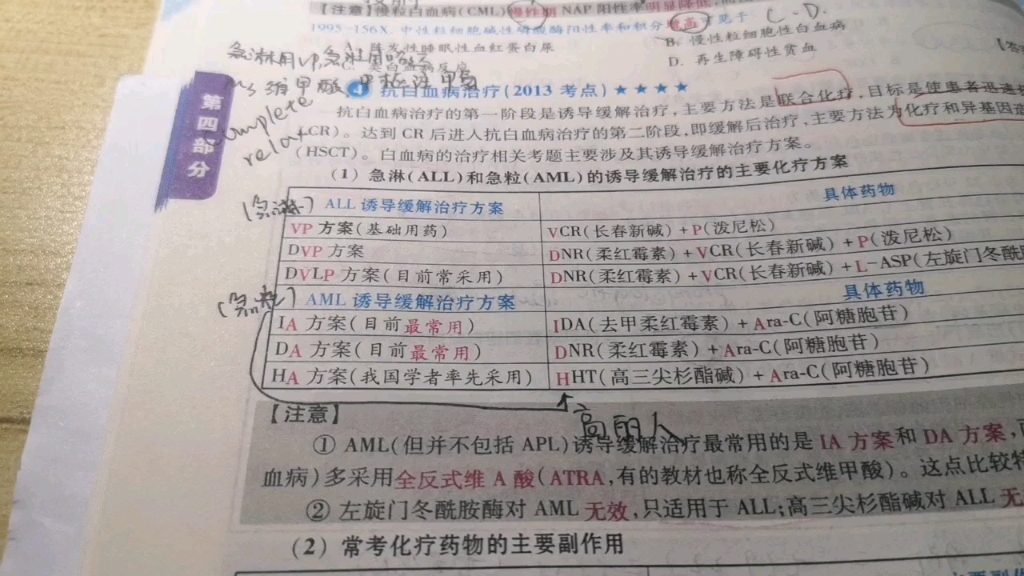 【注意】慢粒白血病(CML)慢性期 NAP 阳性率明显降低
1995-156X. 中性粒细胞碱性磷酸酶阳性率和积分 增高 可见于 C-D.
B. 慢性粒细胞性白血病
阵发性睡眠性血红蛋白尿
D. 再生障碍性贫血
急淋用VP
维甲酸
complete
relax
第四部分
4 抗白血病治疗(2013 考点)★★★★
抗白血病治疗的第一阶段是诱导缓解治疗,主要方法是联合化疗,目标是使患者迅速
(CR)。达到 CR 后进入抗白血病治疗的第二阶段,即缓解后治疗,主要方法为化疗和异基因造
(HSCT)。白血病的治疗相关考题主要涉及其诱导缓解治疗方案。
(1)急淋(ALL)和急粒(AML)的诱导缓解治疗的主要化疗方案
(急淋) ALL 诱导缓解治疗方案 具体药物
VP 方案(基础用药) VCR(长春新碱)+P(泼尼松)
DVP 方案 DNR(柔红霉素)+VCR(长春新碱)+P(泼尼松)
DVLP 方案(目前常采用) DNR(柔红霉素)+VCR(长春新碱)+L-ASP(左旋门冬酰胺
(急粒) AML 诱导缓解治疗方案 具体药物
IA 方案(目前最常用) IDA(去甲柔红霉素)+Ara-C(阿糖胞苷)
DA 方案(目前最常用) DNR(柔红霉素)+Ara-C(阿糖胞苷)
HA 方案(我国学者率先采用) HHT(高三尖杉酯碱)+Ara-C(阿糖胞苷)
高丽人
【注意】
① AML(但并不包括 APL)诱导缓解治疗最常用的是 IA 方案和 DA 方案,
血病)多采用全反式维 A 酸(ATRA,有的教材也称全反式维甲酸)。这点比较特
② 左旋门冬酰胺酶对 AML 无效,只适用于 ALL;高三尖杉酯碱对 ALL 无
(2)常考化疗药物的主要副作用